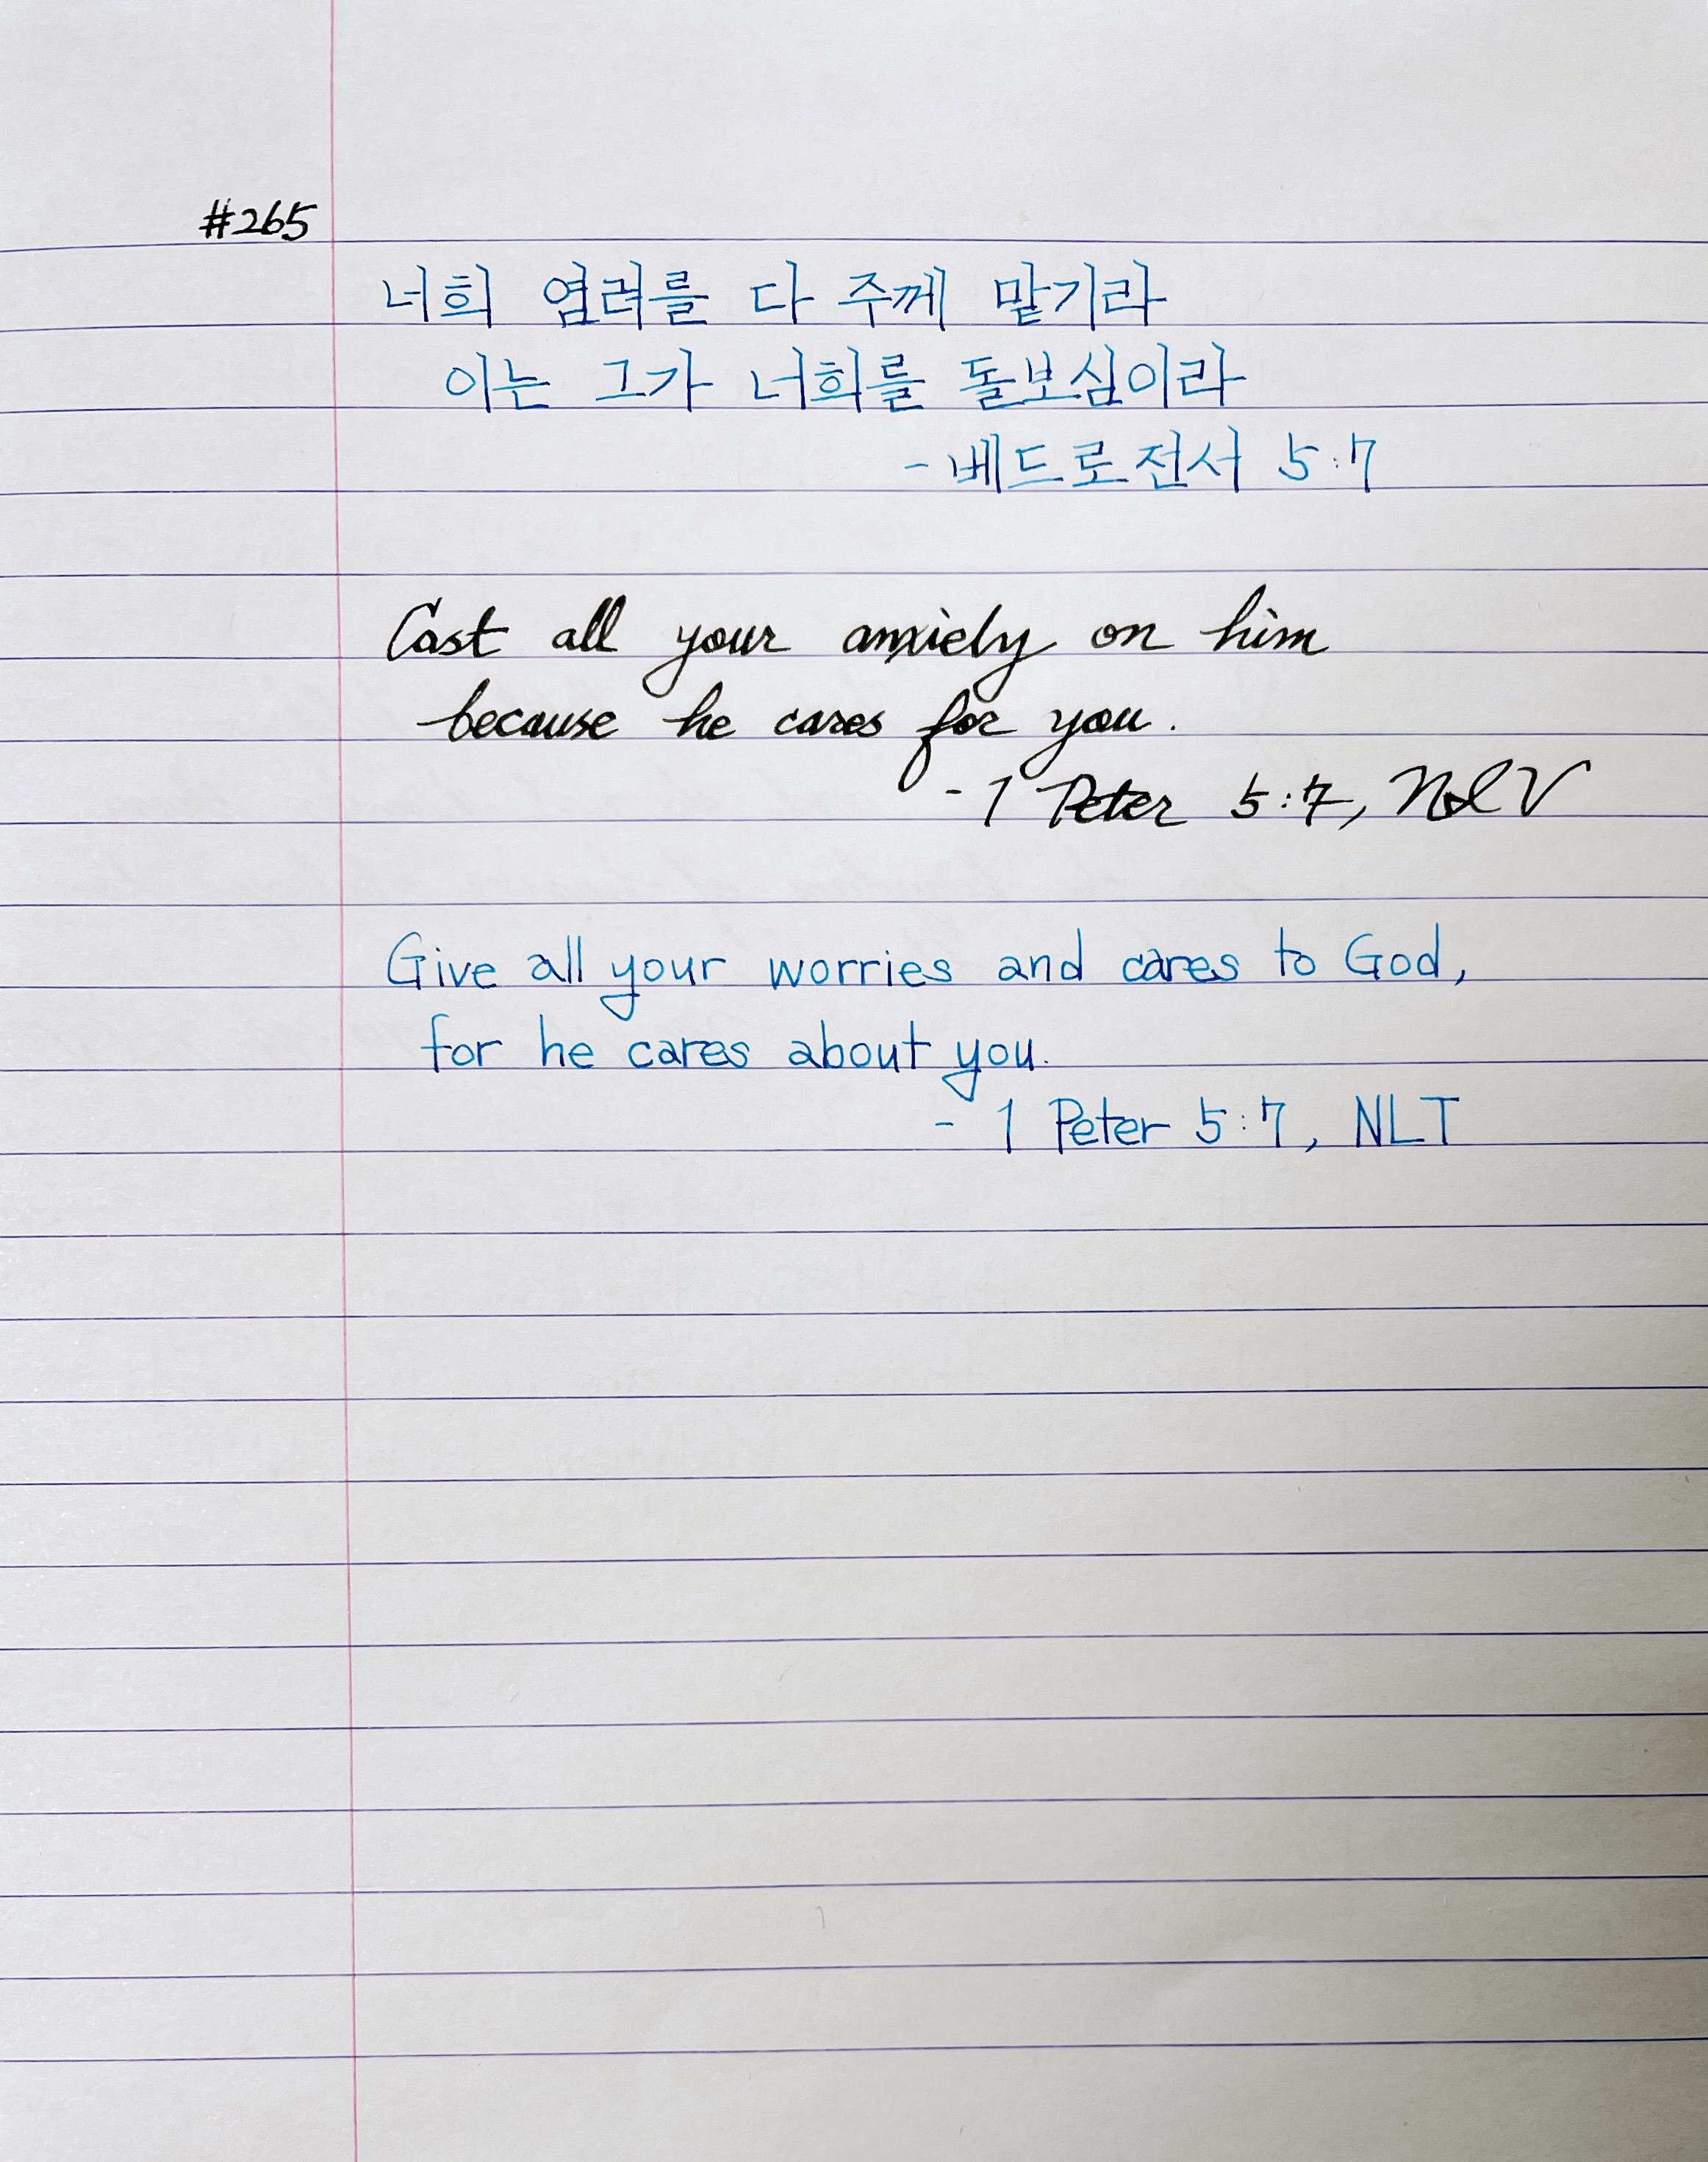 #265
너희 염려를 다 주께 맡기라
이는 그가 너희를 돌보심이라
- 베드로전서 5:7
Cast all your anxiety on him
because he cares for you.
- 1 Peter 5:7, NIV
Give all your worries and cares to God,
for he cares about you.
- 1 Peter 5:7, NLT